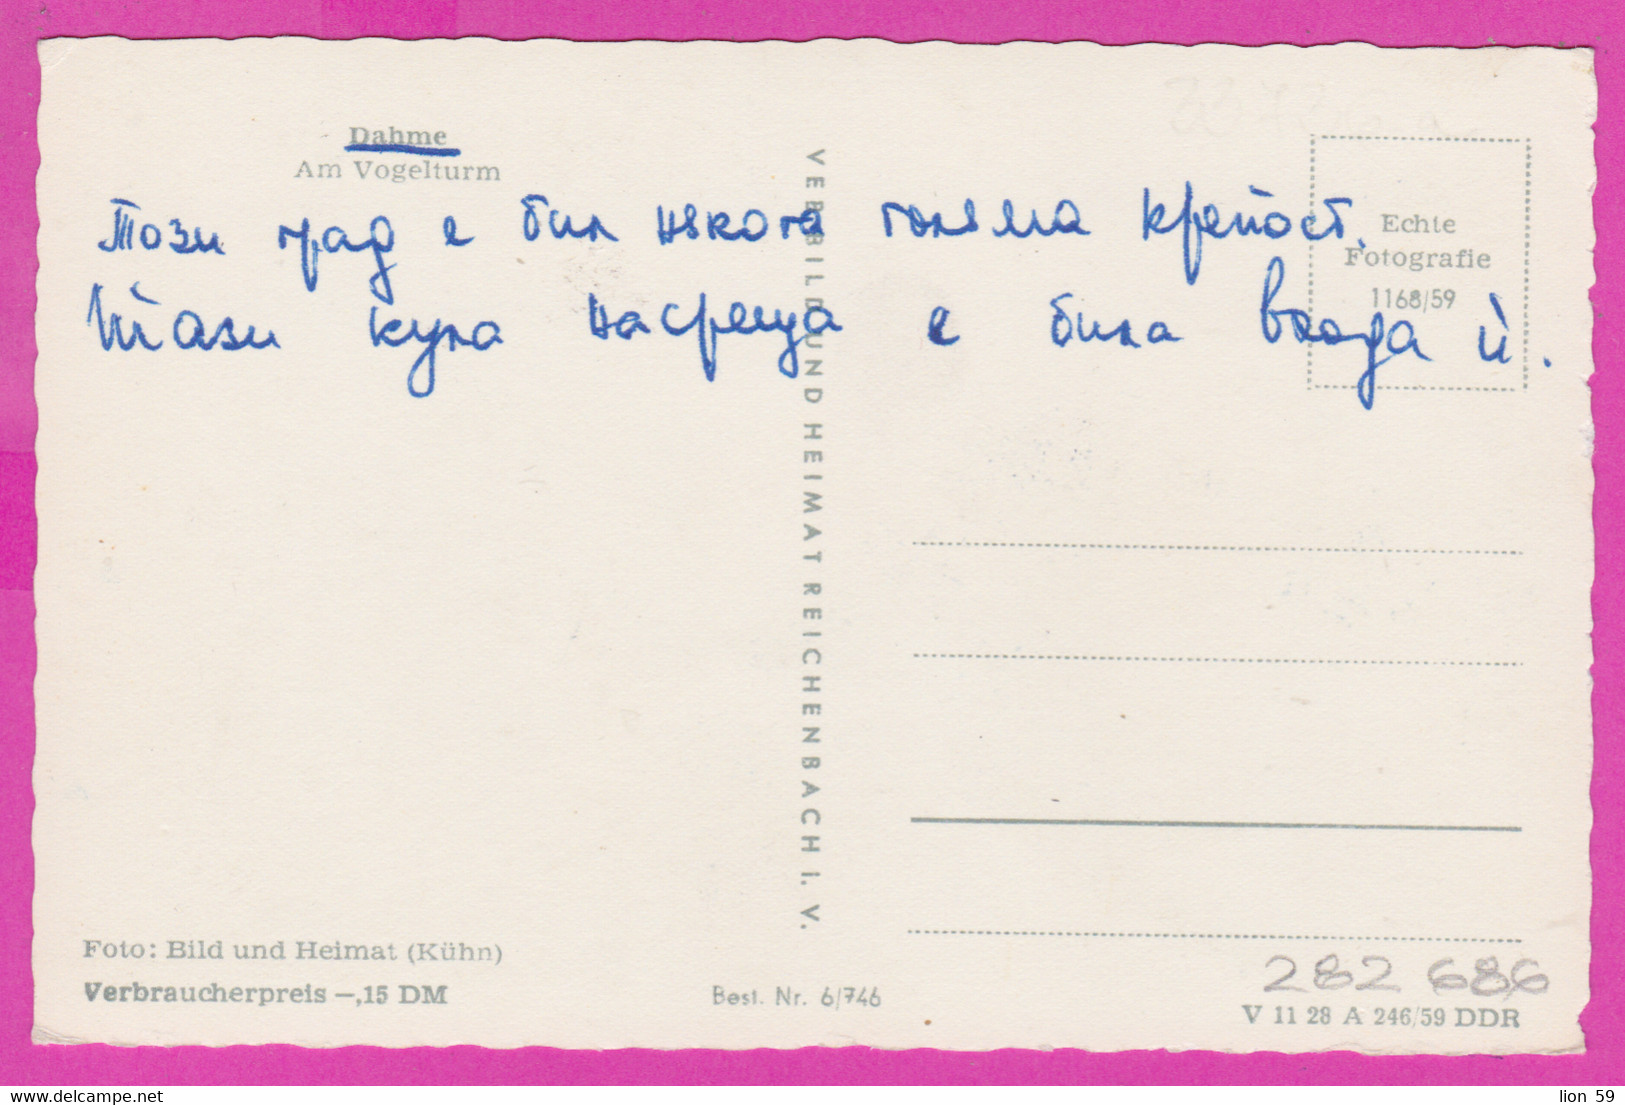 Dahme
Am Vogelturm
Този град е бил някога голяма крепост.
Тази кула насреща е била входа ѝ.
Echte
Fotografie
1168/59
VEB BILD UND HEIMAT REICHENBACH I. V.
Foto: Bild und Heimat (Kühn)
Verbraucherpreis –,15 DM
Best. Nr. 6/746
282 686
V 11 28 A 246/59 DDR
lion 59